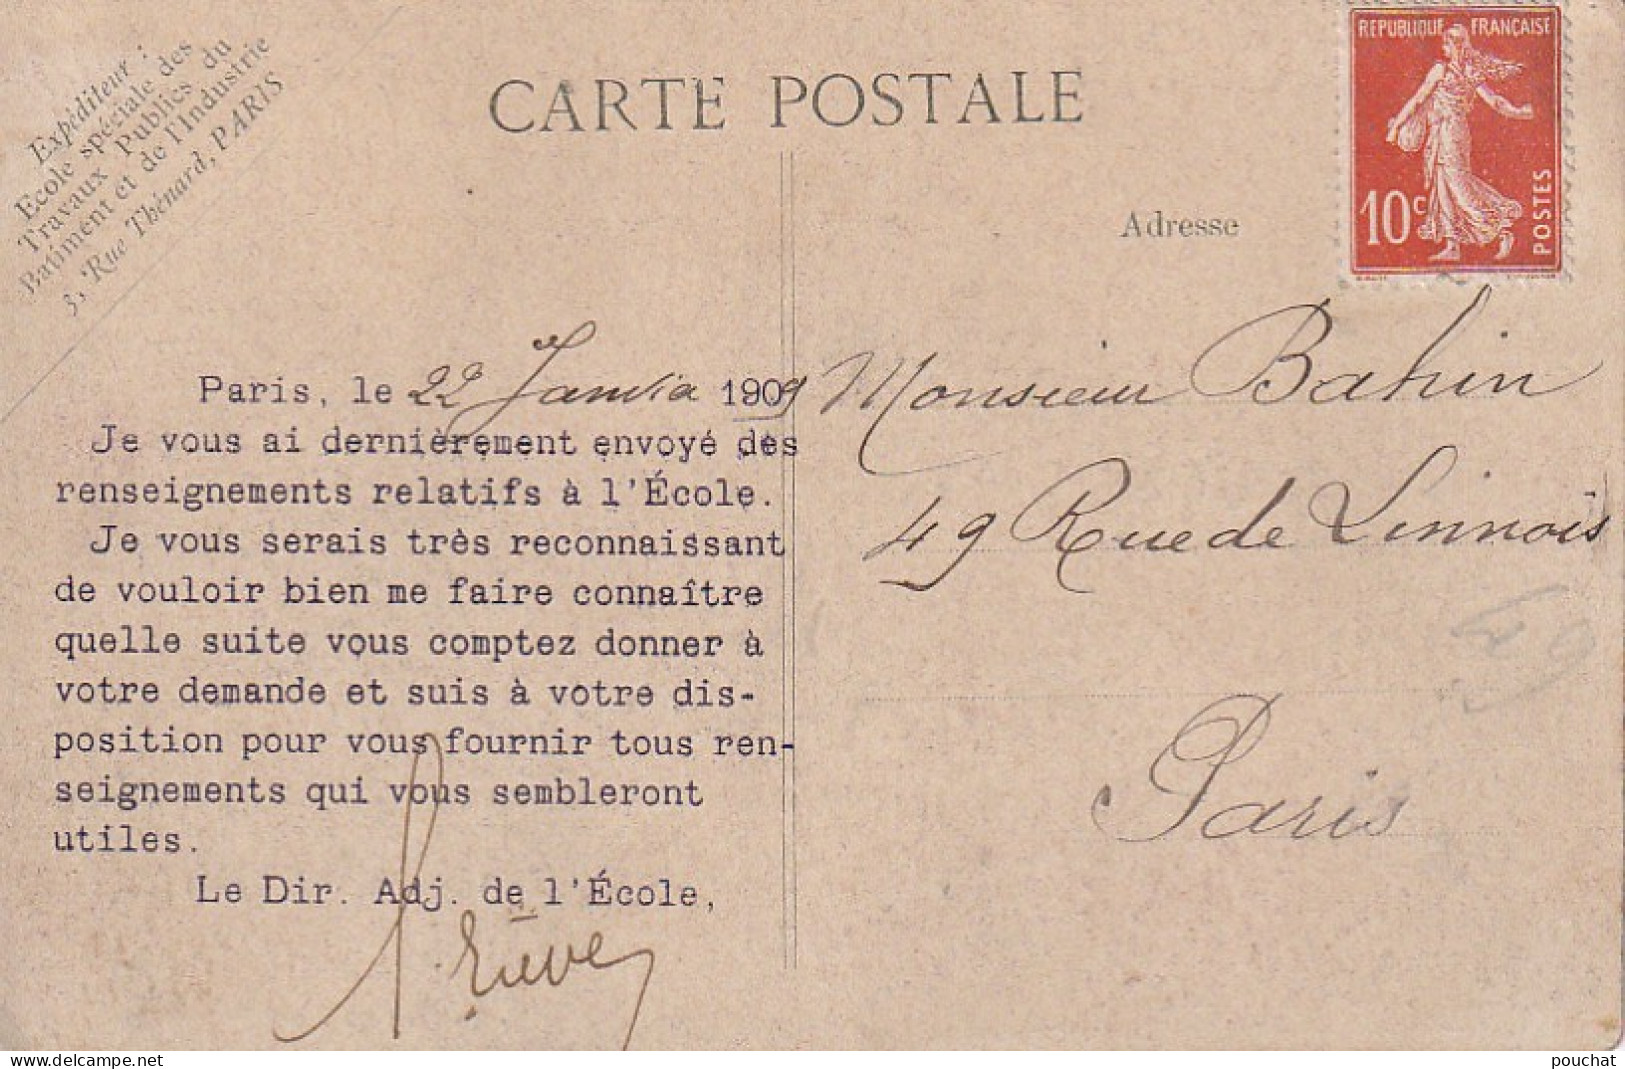 Expéditeur :
Ecole spéciale des
Travaux Publics du
Batiment et de l'Industrie
3, Rue Thénard, PARIS
CARTE POSTALE
REPUBLIQUE FRANÇAISE
10c
POSTES
Adresse
Paris, le 22 Janvier 1909
Je vous ai dernièrement envoyé des
renseignements relatifs à l'École.
Je vous serais très reconnaissant
de vouloir bien me faire connaître
quelle suite vous comptez donner à
votre demande et suis à votre dis-
position pour vous fournir tous ren-
seignements qui vous sembleront
utiles.
Le Dir. Adj. de l'École,
Monsieur Bahin
49 Rue de Linnois
Paris
49
www.delcampe.net
pouchat